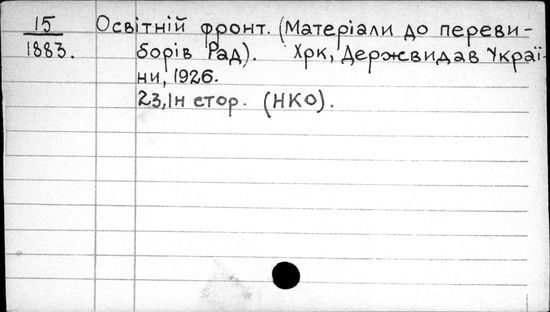 15 Освітній фронт. (Матеріали до переви-
1883. борів Рад). Хрк, Державидав Украї-
ни, 1926.
23,1н стор. (НКО).